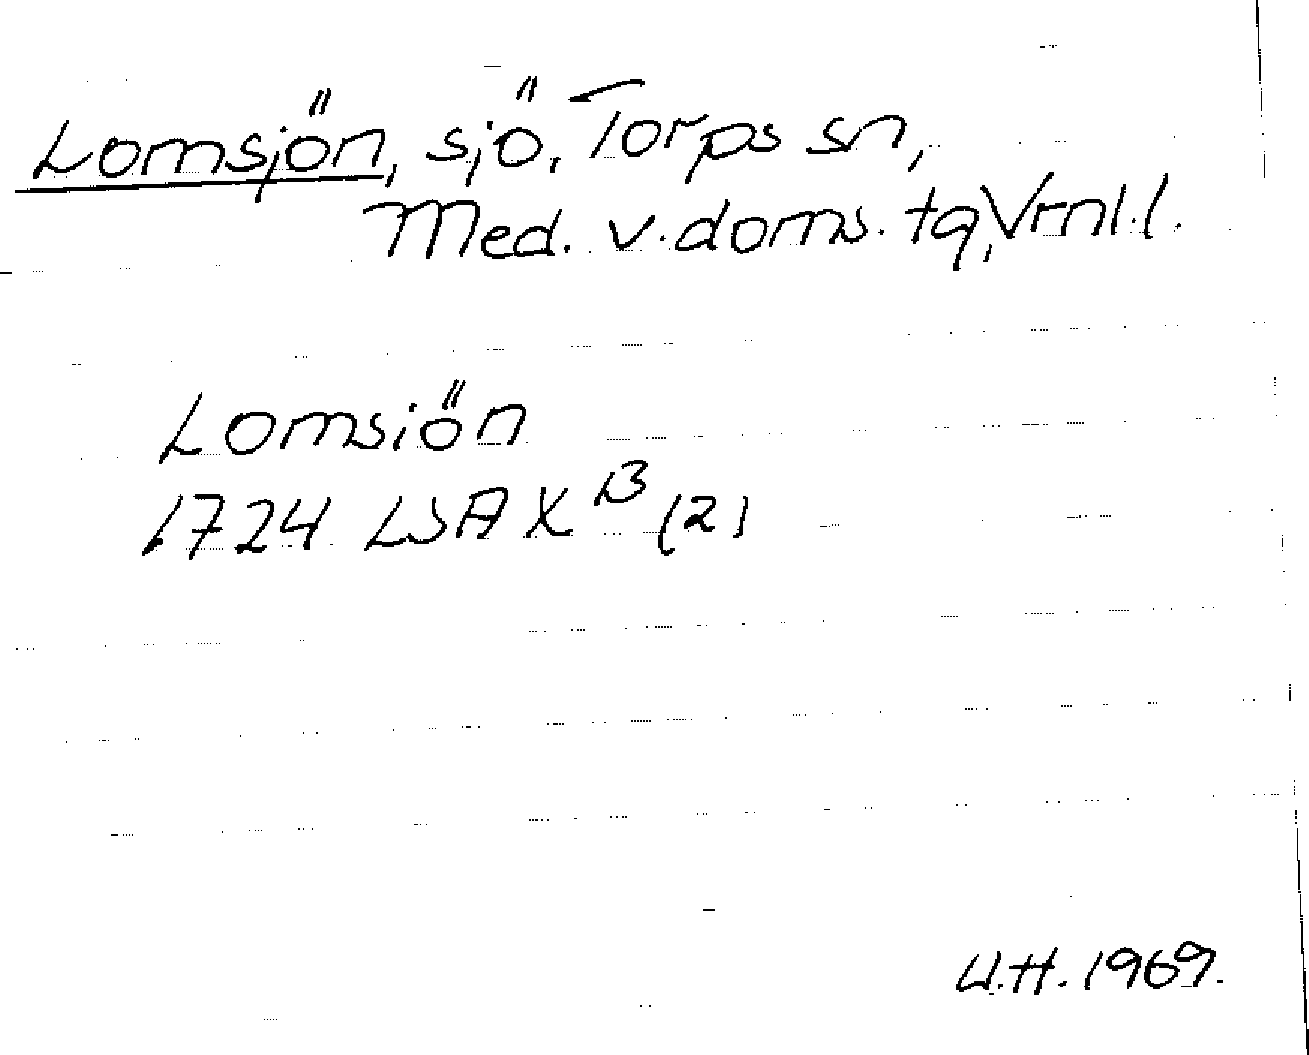 Lomsjön, sjö, Torps sn,
Med. v. doms. tg, Vrnl. l.
Lomsiön
1724 LSA X B (2)
U.H. 1969.